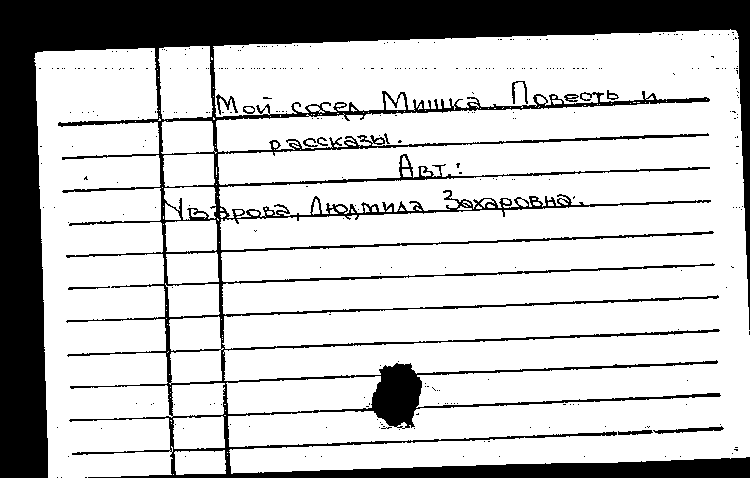 Мой сосед Мишка. Повесть и
рассказы.
Авт.:
Уварова, Людмила Захаровна.